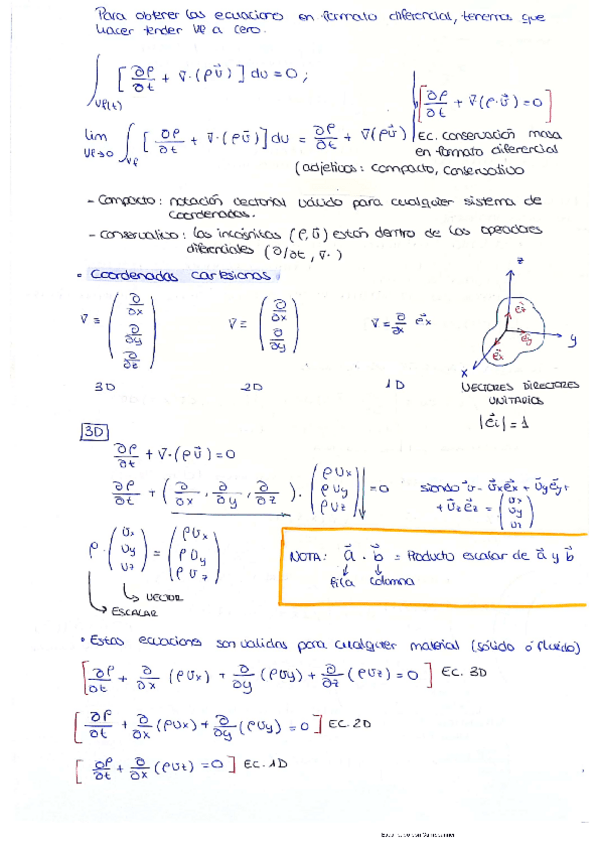 Para obtener las ecuaciones en formato diferencial, tenemos que
hacer tender Vf a cero.
∫Vf(t) [∂ρ/∂t + ∇·(ρū)] dv = 0 ;
[∂ρ/∂t + ∇(ρ·ū) = 0]
lim Vf→0 ∫Vf [∂ρ/∂t + ∇·(ρū)] dv = ∂ρ/∂t + ∇(ρū)
Ec. conservación masa
en formato diferencial
(adjetivos: compacto, conservativo
- Compacto: notación vectorial válido para cualquier sistema de
coordenadas.
- conservativo: las incógnitas (ρ, ū) están dentro de los operadores
diferenciales (∂/∂t, ∇·)
• Coordenadas cartesianas
∇ ≡ (∂/∂x ∂/∂y ∂/∂z)
∇ ≡ (∂/∂x ∂/∂y)
∇ = ∂/∂x e⃗x
z
e⃗z
e⃗y
e⃗x
y
x
3D
2D
1D
VECTORES DIRECTORES
UNITARIOS
|e⃗i| = 1
3D
∂ρ/∂t + ∇·(ρv⃗) = 0
∂ρ/∂t + (∂/∂x, ∂/∂y, ∂/∂z) · (ρUx ρUy ρUz) = 0
siendo v⃗ = v⃗x e⃗x + v⃗y e⃗y +
+ v⃗z e⃗z = (Ux Uy Uz)
ρ · (Ux Uy Uz) = (ρUx ρUy ρUz)
VECTOR
ESCALAR
NOTA: a⃗ · b⃗ = Producto escalar de a⃗ y b⃗
fila columna
• Estas ecuaciones son validas para cualquier material (sólido ó fluido)
[∂ρ/∂t + ∂/∂x (ρUx) + ∂/∂y (ρUy) + ∂/∂z (ρUz) = 0] EC. 3D
[∂ρ/∂t + ∂/∂x (ρUx) + ∂/∂y (ρUy) = 0] EC. 2D
[∂ρ/∂t + ∂/∂x (ρUt) = 0] EC. 1D